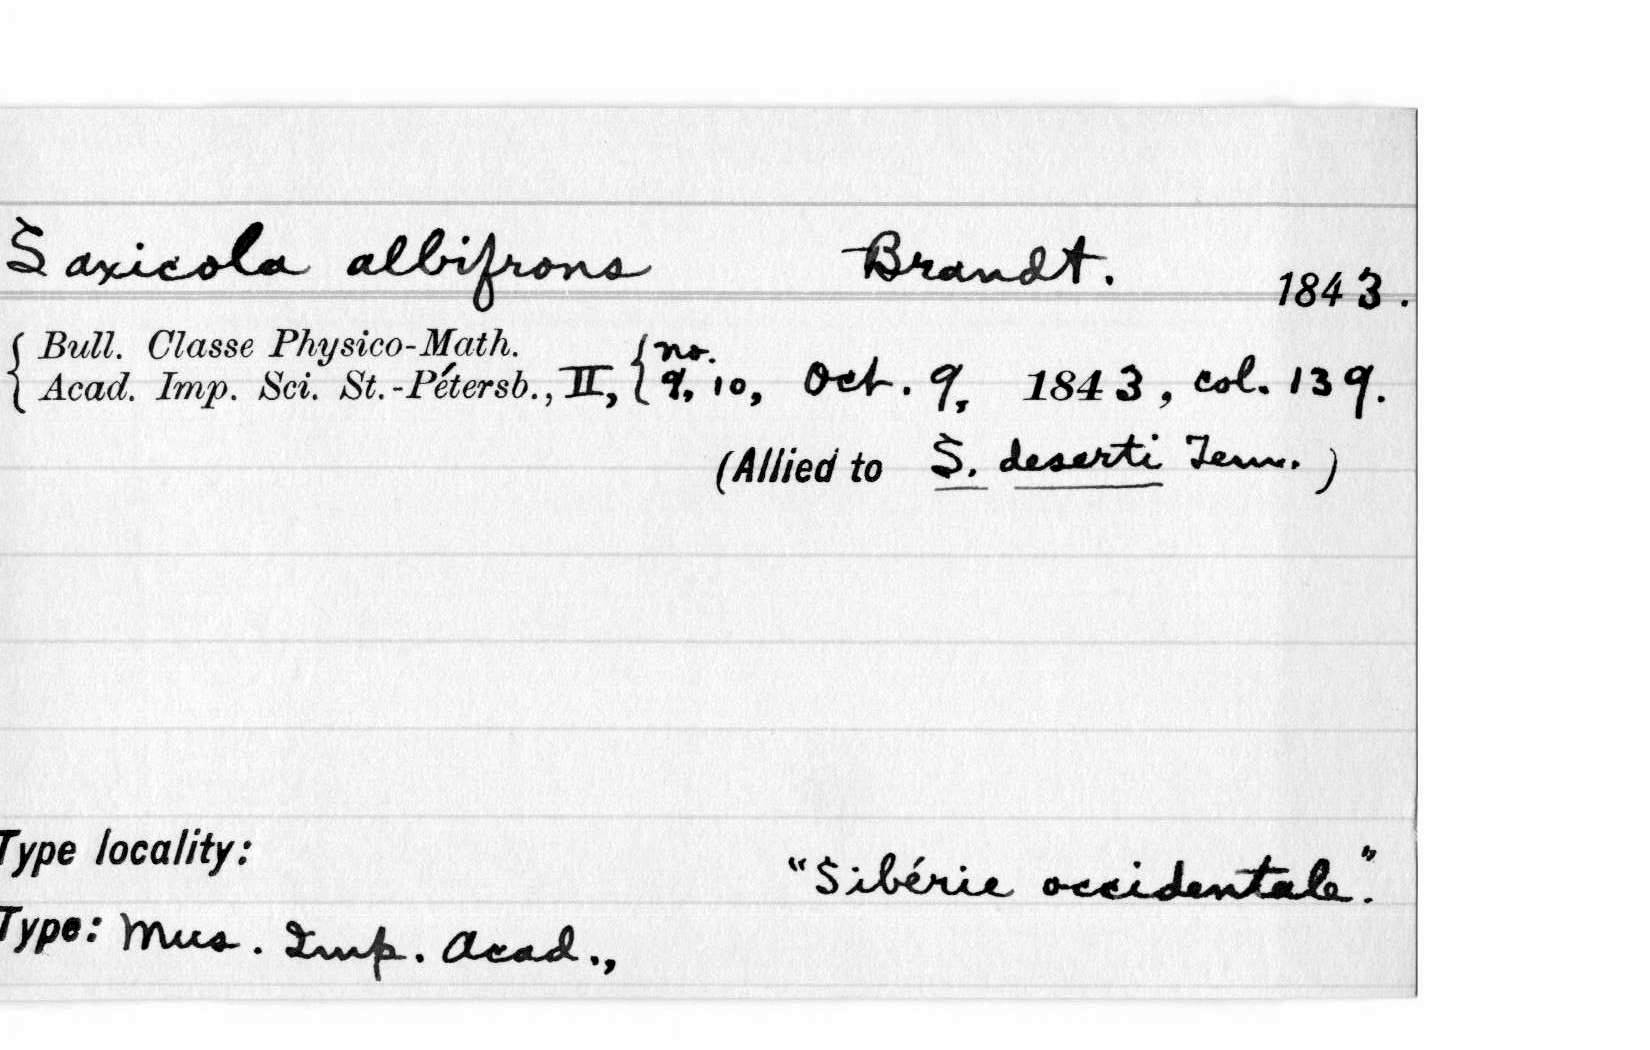 Saxicola albifrons Brandt. 1843.
Bull. Classe Physico-Math.
Acad. Imp. Sci. St.-Pétersb., II, { no. 9, 10, Oct. 9, 1843, col. 139.
(Allied to S. deserti Tem.)
Type locality:
"Sibérie occidentale".
Type: Mus. Imp. Acad.,